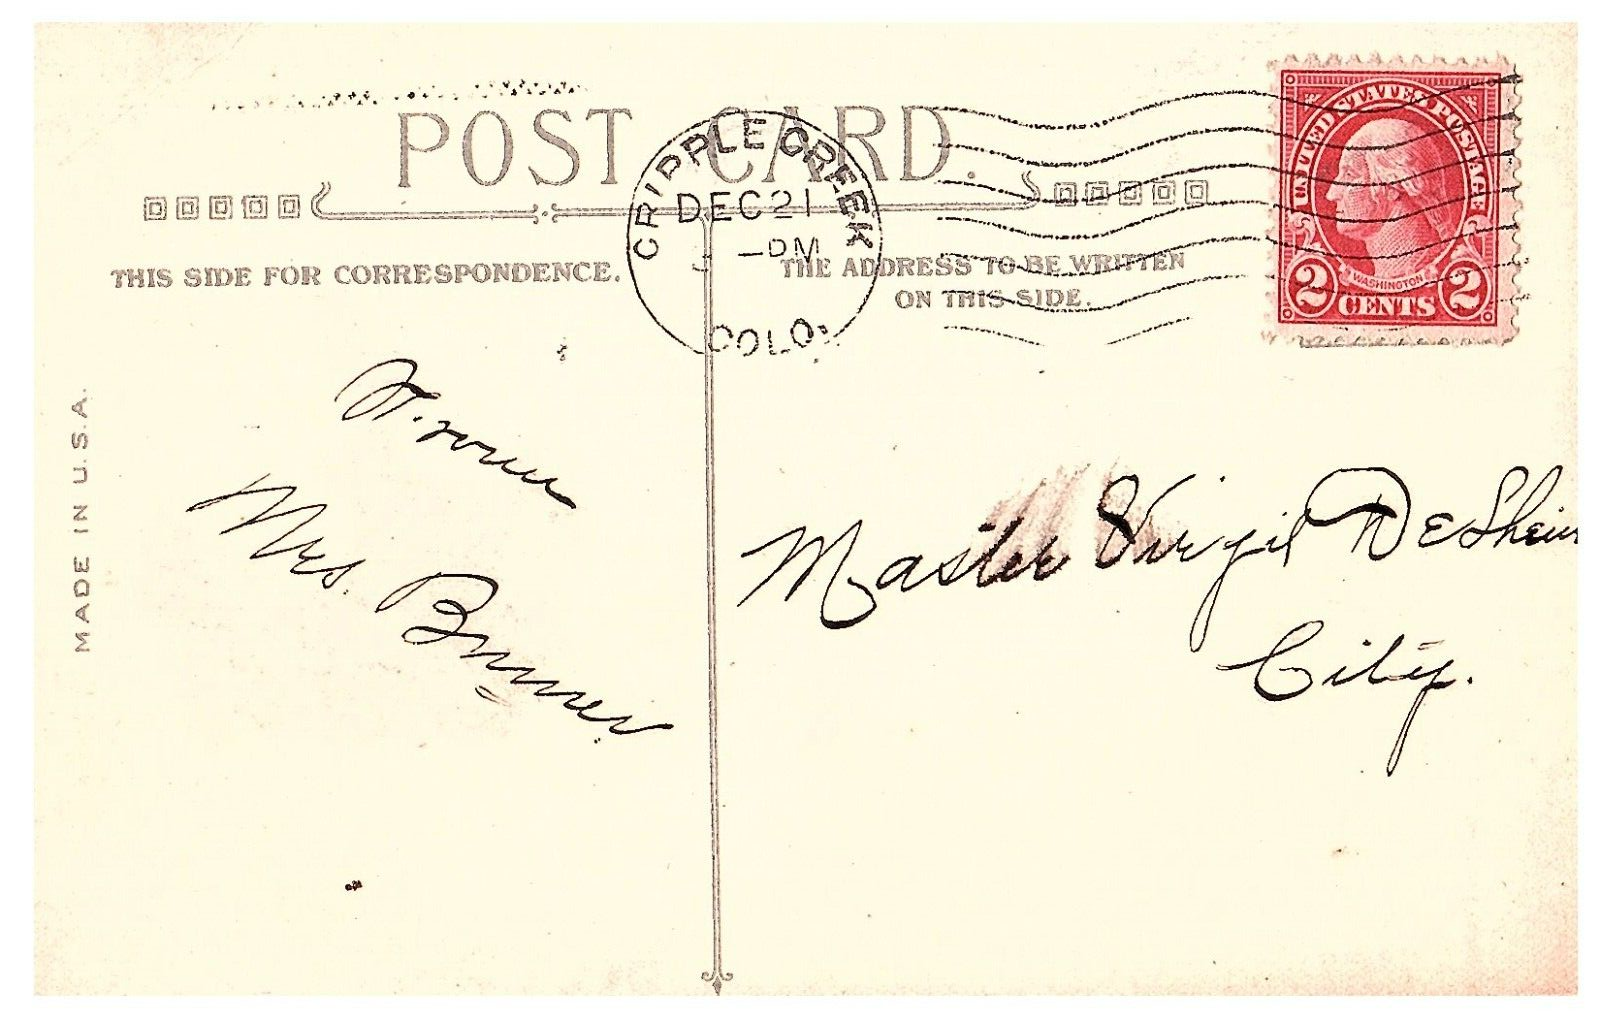 POST CARD.
CRIPPLE CREEK
DEC 21
–PM
COLO.
UNITED STATES POSTAGE
WASHINGTON
2 CENTS 2
THIS SIDE FOR CORRESPONDENCE.
THE ADDRESS TO BE WRITTEN
ON THIS SIDE.
MADE IN U.S.A.
Mrs.
Master Virgil DeShein
City.